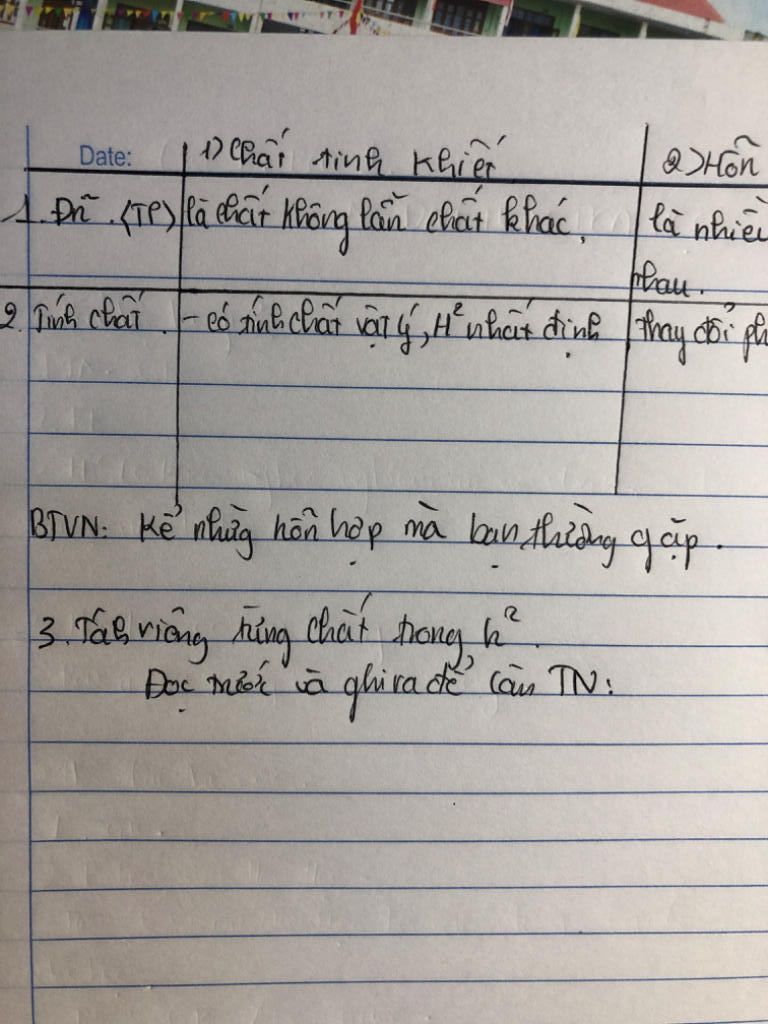 Date: 1) Chất tinh khiết 2) Hỗn
1. Đn̄. (TP) là chất không lẫn chất khác, là nhiều
nhau.
2. Tính chất. - có tính chất vật lý, H² nhất định thay đổi ph
BTVN: Kể những hỗn hợp mà bạn thường gặp.
3. Tách riêng từng chất trong h².
Đọc trước và ghi ra để làm TN: